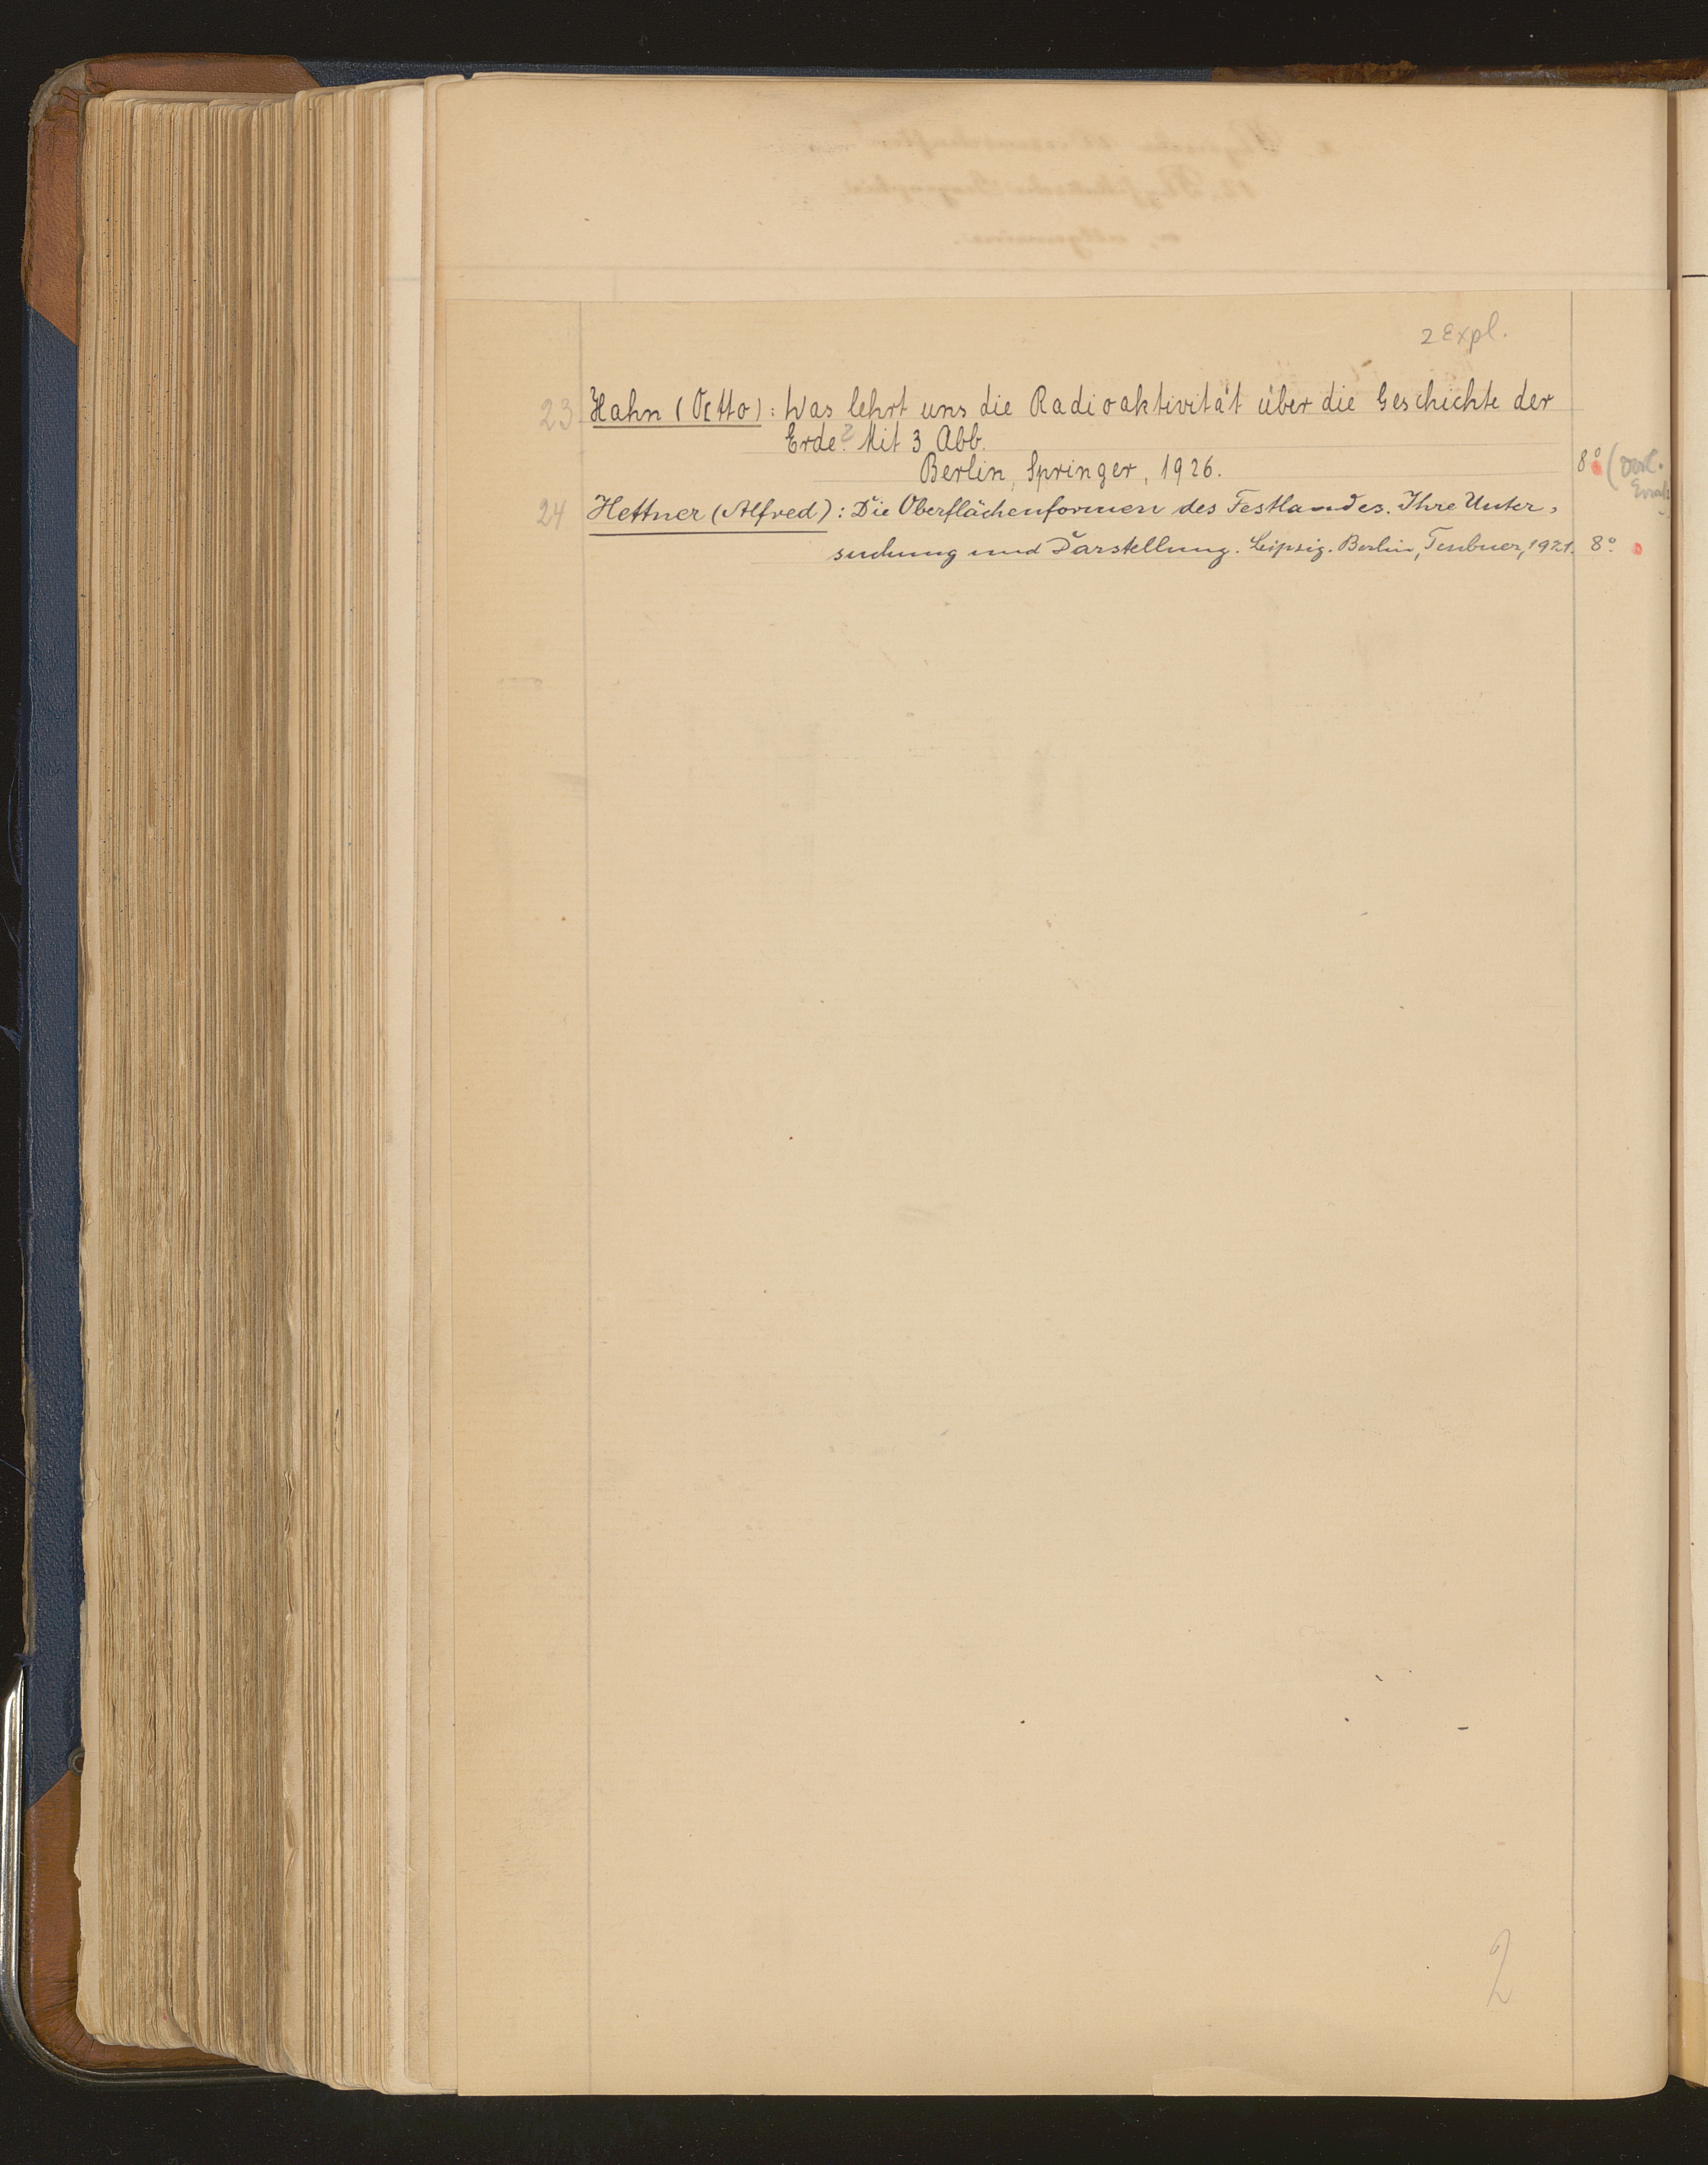 2 Expl.
23 Hahn (Otto): Was lehrt uns die Radioaktivität über die Geschichte der
Erde? Mit 3 Abb.
Berlin, Springer, 1926. 8°
24 Hettner (Alfred): Die Oberflächenformen des Festlandes. Ihre Unter-
suchung und Darstellung. Leipzig. Berlin, Teubner, 1921. 8°
2